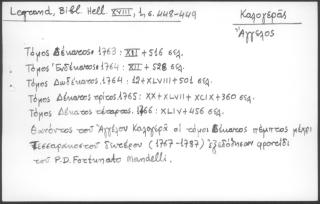 Legrand, Bibl. Hell. XVIII, 1, σ. 448-449
Καλογερᾶς
Ἄγγελος
Τόμος Δέκατος: 1763: XII + 516 σελ.
Τόμος Ἑνδέκατος: 1764: XII + 528 σελ.
Τόμος Δωδέκατος: 1764: 12 + XLVIII + 501 σελ.
Τόμος Δέκατος τρίτος 1765: XX + XLVII + XCIX + 360 σελ.
Τόμος Δέκατος τέταρτος: 1766: XLIV + 456 σελ.
Θανόντος τοῦ Ἀγγέλου Καλογερᾶ οἱ τόμοι δέκατος πέμπτος μέχρι
τεσσαρακοστοῦ δευτέρου (1767-1787) ἐξεδόθησαν φροντίδι
τοῦ P.D. Fortunato Mandelli.